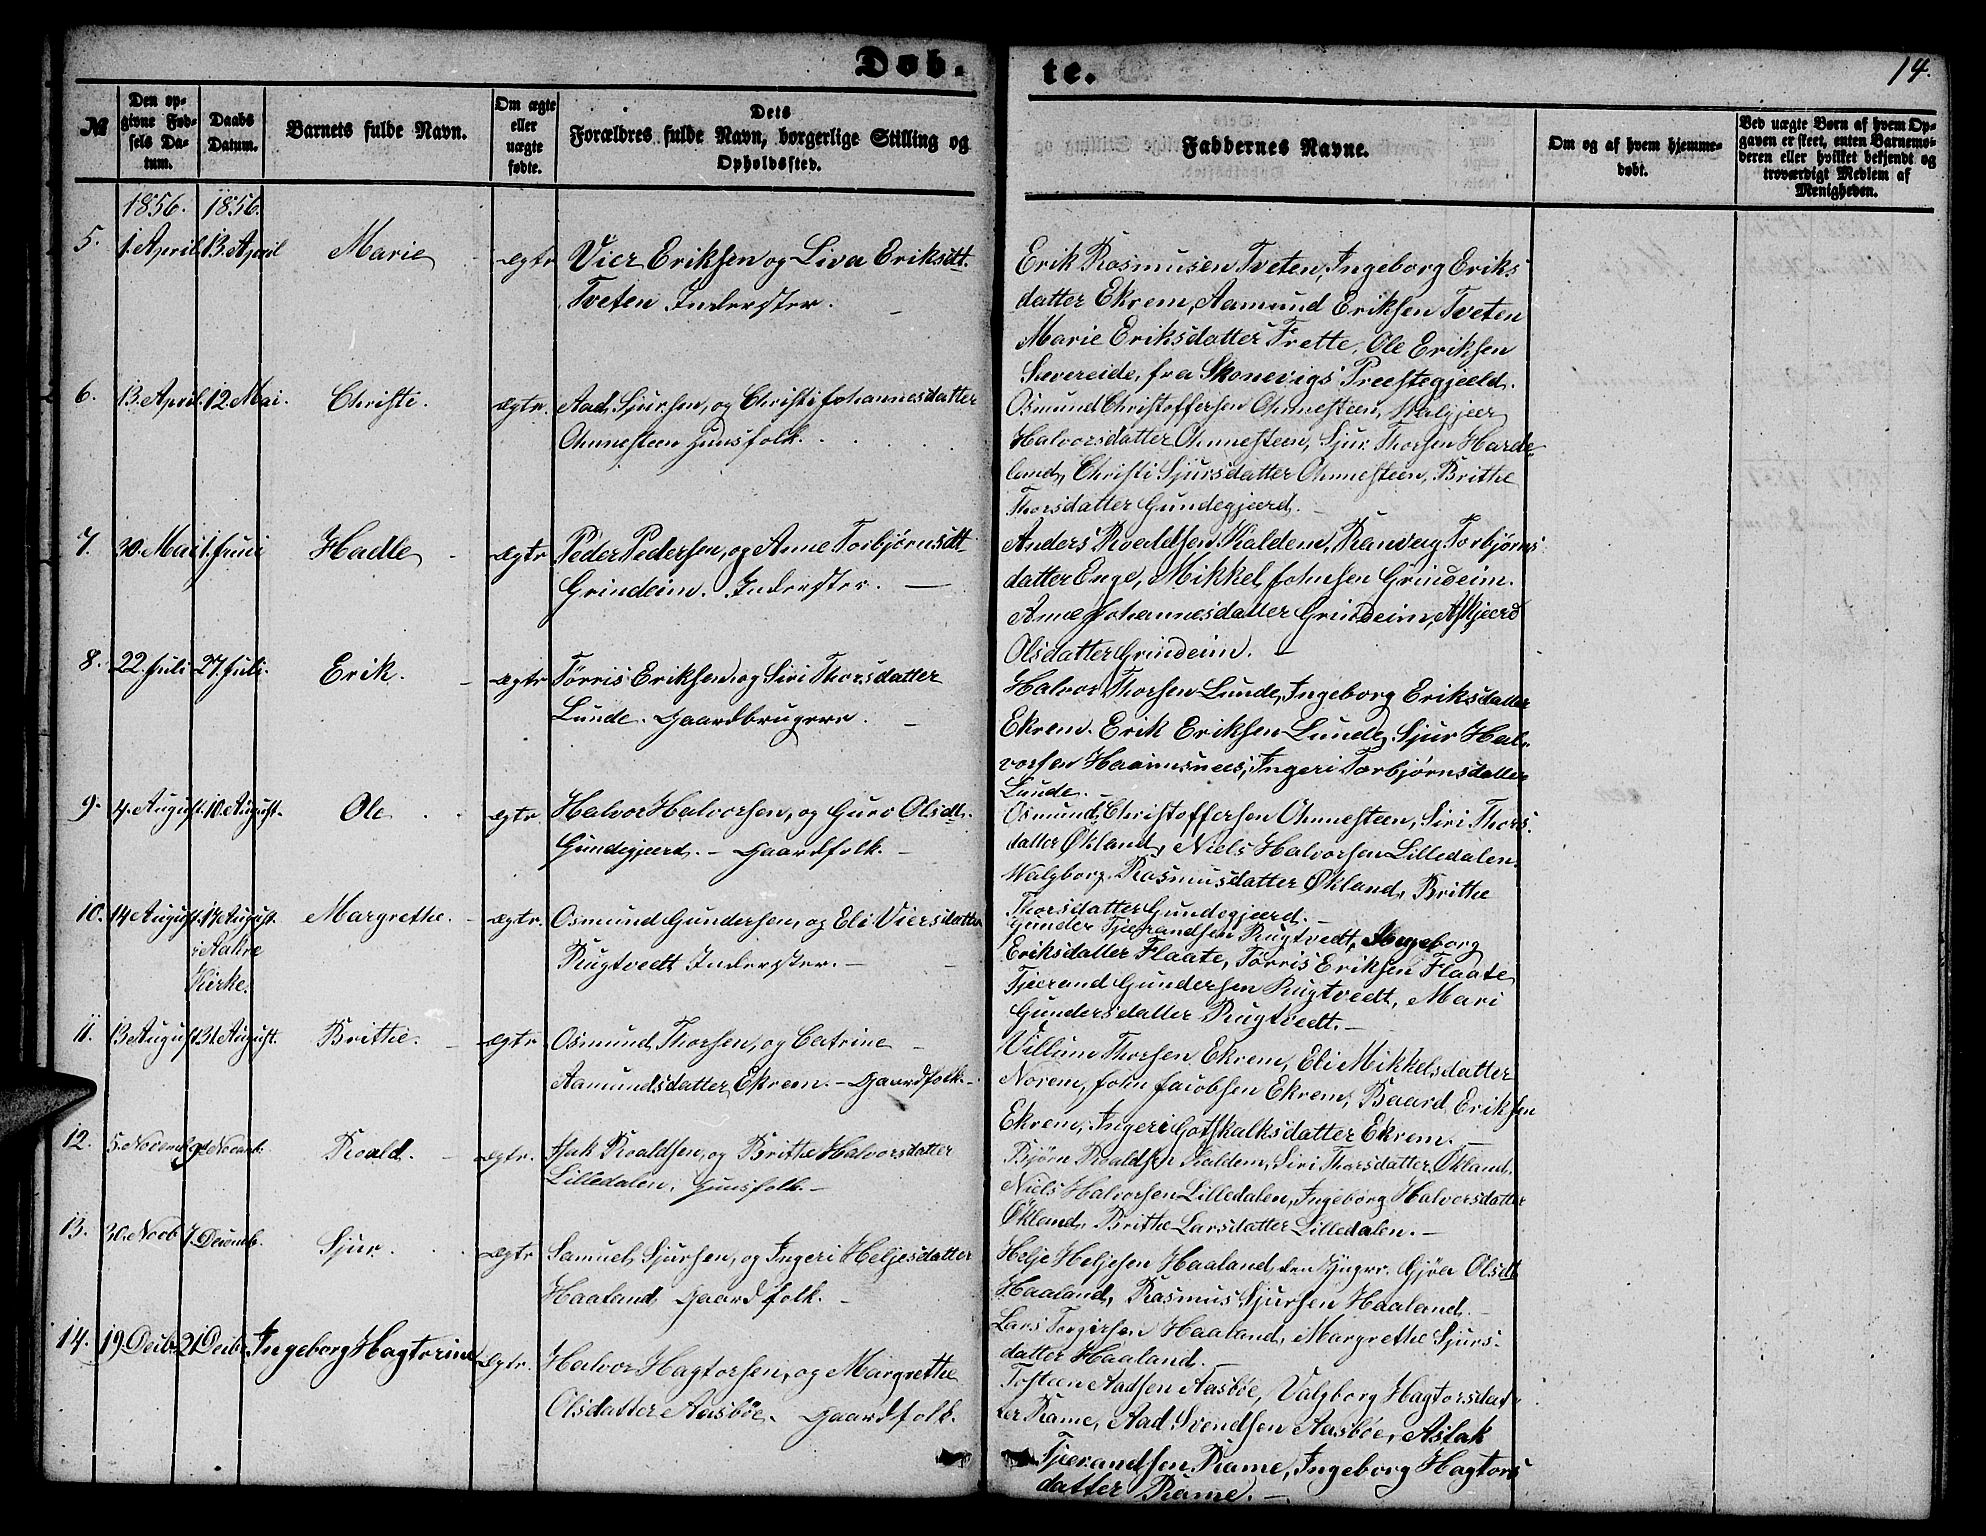 Døb-
te.
14.
№
Den op-
givne Fød-
sels Da-
tum.
Daabs
Datum.
Barnets fulde Navn.
Om ægte
eller
uægte
fødte.
Dets
Forældres fulde Navn, borgerlige Stilling og
Opholdssted.
Faddernes Navne.
Om og af hvem hjemme-
døbt.
Ved uægte Børn af hvem Op-
gaven er skeet, enten Barnemo-
deren eller hvilket bekjendt og
troværdigt Medlem af
Menigheden.
1856. 1856.
5. 1. April. 13. April Marie ægte Vier Eriksen og Liva Eriksdtt.
Tveten Inderster.
Erik Rasmusen Tveten, Ingeborg Eriks
datter Ekrem, Aamund Eriksen Tveten
Marie Eriksdatter Frette, Ole Eriksen
Sævereide, fra Skonevigs Præstegjæld.
6. 13. April. 12. Mai. Christi. ægte. Aad Sjursen, og Christi Johannesdatter
Ohnnesteen Huusfolk.
Osmund Christoffersen Ohnnesteen, Valgjær
Halvorsdatter Ohnnesteen, Sjur Thorsen Harde-
land, Christi Sjursdatter Ohnnesteen, Brithe
Thorsdatter Gundegjærd.
7. 30. Mai 1. Juni Hadle ægte Peder Pedersen, og Anne Torbjørnsdt
Grindeim. Inderster.
Anders Roaldsen Kaldem, Ranveig Torbjørns
datter Enge, Mikkel Johnsen Grindeim.
Anne Johannesdatter Grindeim, Askjærd
Olsdatter Grindeim.
8. 22. Juli 27. Juli. Erik. ægte Tørris Eriksen og Siri Thorsdatter
Lunde. Gaardbrugere.
Halvor Thorsen Lunde, Ingeborg Eriksdatter
Ekrem. Erik Eriksen Lunde, Sjur Hal-
vorsen Haaimsnees, Ingeri Torbjørnsdatter
Lunde.
9. 4. August. 10. August. Ole ægte. Halvor Halvorsen, og Guro Olsdt.
Gundegjærd. - Gaardfolk. -
Osmund Christoffersen Ohnnesteen, Siri Thors-
datter Økland, Niels Halvorsen Lilledalen.
Walgborg Rasmusdatter Økland, Brithe
Thorsdatter Gundegjærd.
10. 14 August. 17. August. Margrethe. ægte. Osmund Gundersen, og Eli Viersdatter
i Aakre
Kirke.
Rugtvedt Inderster. -
Gunder Tjerandsen Rugtvedt, Ingeborg
Eriksdatter Flaate, Tørris Eriksen Flaate
Tjerand Gundersen Rugtvedt, Mari
Gundersdatter Rugtvedt. -
11. 13 August. 31. August. Brithe. ægte Osmund Thorsen, og Catrine
Aamundsdatter Ekrem. - Gaardfolk. -
Villum Thorsen Ekrem, Eli Mikkelsdatter
Norem, John Jacobsen Ekrem, Baard Eriksen
Ekrem, Ingeri Gotskalksdatter Ekrem.
12. 5. Novemb. 9de Novemb. Roald. ægte. Isak Roaldsen, og Brithe Halvorsdatter
Lilledalen, Huusfolk. -
Bjørn Roaldsen Kaldem, Siri Thorsdatter Økland.
Niels Halvorsen Lilledalen, Ingeborg Halvorsdatter
Økland, Brithe Larsdatter Lilledalen. -
13. 30. Novb 7. Decemb. Sjur. ægte Samuel Sjursen, og Ingeri Heljesdatter
Haaland, Gaardfolk. -
Helje Heljesen Haaland, den yngre. Gjøa Olsdt
Haaland, Rasmus Sjursen Haaland.
Lars Torgirsen Haaland, Margrethe Sjurs-
datter Haaland. -
14. 19. Decbr. 21 Decbr. Ingeborg Hagtorine ægte. Halvor Hagtorsen, og Margrethe
Olsdatter Aasbøe. Gaardfolk.
Tosteen Aadsen Aasbøe, Valgborg Hagtorsdat-
ter Rame, Aad Svendsen Aasbøe, Aslak
Tjerandsen Rame, Ingeborg Hagtors
datter Rame. -